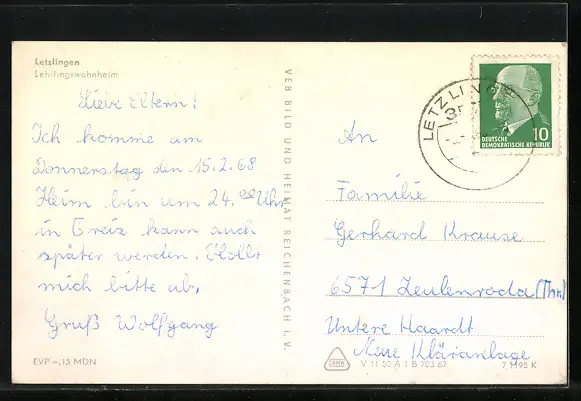 Letzlingen
Lehrlingswohnheim
Liebe Eltern!
Ich komme am
Donnerstag den 15.2.68
Heim bin um 24.00 Uhr
in Greiz kann auch
später werden. Hollt
mich bitte ab.
Gruß Wolfgang
EVP -,15 MDN
VEB BILD UND HEIMAT REICHENBACH I. V.
LETZLINGEN
DEUTSCHE
DEMOKRATISCHE REPUBLIK
10
An
Familie
Gerhard Krause
6571 Zeulenroda (Thür)
Untere Haardt
Neue Kläranlage
V 11 50 A 1 B 703 67
7 1495 K